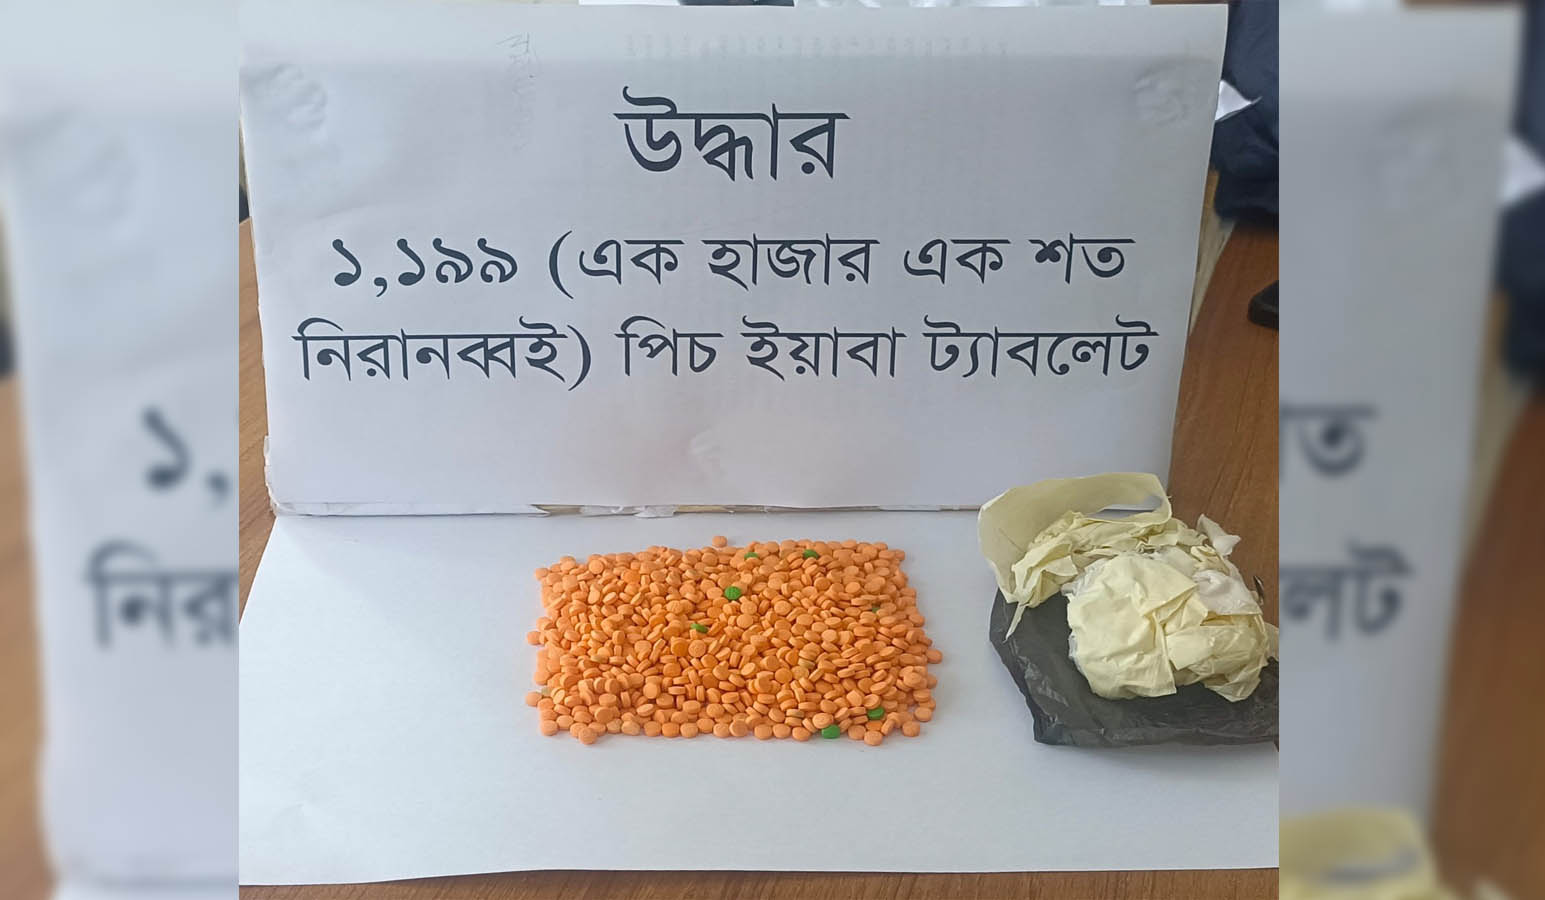 উদ্ধার
১,১৯৯ (এক হাজার এক শত
নিরানব্বই) পিচ ইয়াবা ট্যাবলেট